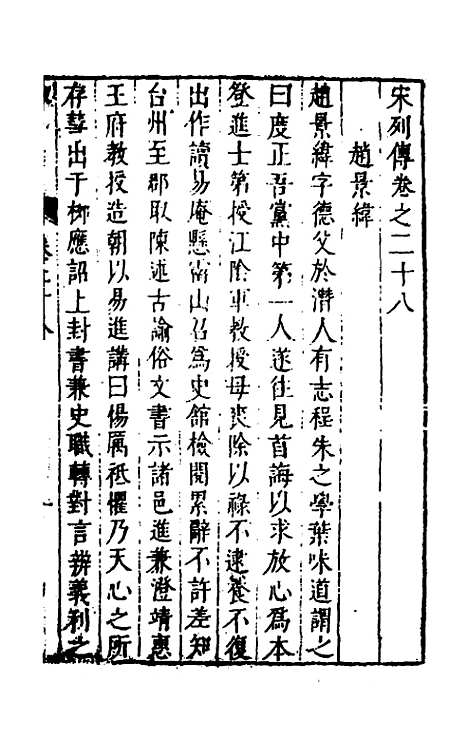 宋列傳卷之二十八
趙景緯
趙景緯字德父於潛人有志程朱之學葉味道謂之
曰度正吾黨中第一人遂往見首誨以求放心為本
登進士第授江陰軍教授母喪除以祿不逮養不復
出作讀易庵懸霤山召為史館檢閱累辭不許差知
台州至郡取陳述古諭俗文書示諸邑進兼澄靖惠
王府教授造朝以易進講曰傷厲祗懼乃天心之所
存彗出于柳應詔上封書兼史職轉對言辨義利之